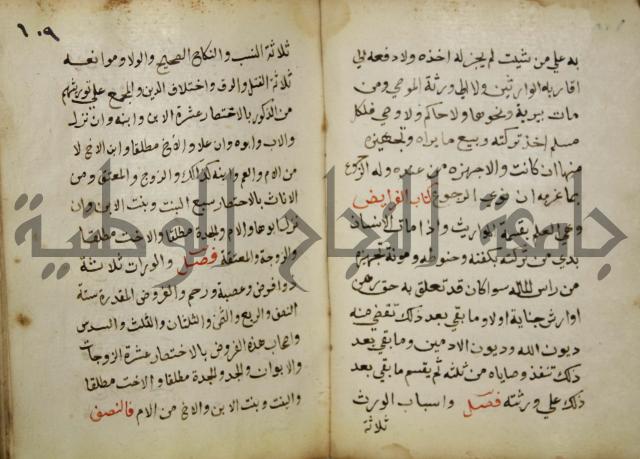 به علي من نثبت لم يجز له اخذه ولا دفعه لي
اقاربه الوارثين ولا الي ورثة الموصي ومن
مات ببرية ونحوها ولا حاكم ولا وصي فلكل
مسلم اخذ تركته وبيع ما يراه وتجهيزه
منها ان كانت والا جهزه من عنده وله الرجوع
بما غرمه ان نوي الرجوع كتاب الفرايض
وهي العلم بقسمة المواريث واذا مات الانسان
بدي من تركته بكفنه وحنوطه ومونة تجهيزه
من راس ماله سوا كان قد تعلق به حق رهن
او ارش جناية اولا وما بقي بعد ذلك تقضي منه
ديون الله وديون الادمين وما بقي بعد
ذلك تنفذ وصاياه من ثلثه ثم يقسم ما بقي بعد
ذلك علي ورثته فصل واسباب الورث
ثلاثة
١٠٩
ثلاثة النسب والنكاح الصحيح والولا وموانعه
ثلاثة القتل والرق واختلاف الدين والمجمع علي توريثهم
من الذكور بالاختصار عشرة الابن وابنه وان نزل
والاب وابوه وان علا والاخ مطلقا وابن الاخ لا
من الام والعم وابنه كذلك والزوج والمعتق ومن
الاناث بالاختصار سبع البنت وبنت الابن وان
نزل ابوها والام والجدة مطلقا والاخت مطلقا
والزوجة والمعتقة فصل والوراث ثلاثة
ذوا فروض وعصبة ورحم والفروض المقدرة ستة
النصف والربع والثمن والثلثان والثلث والسدس
واصحاب هذه الفروض بالاختصار عشرة الزوجان
والابوان والجد والجدة مطلقا والاخت مطلقا
والبنت وبنت الابن والاخ من الام فالنصف
جامعة النجاح الوطنية